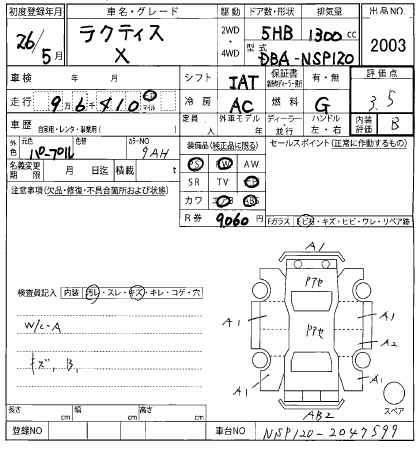 初度登録年月 車名・グレード 駆動 ドア数・形状 排気量 出品NO.
26/5月 ラクティス X 2WD・4WD 5HB 1300cc 2003
型式 DBA-NSP120
車検 年 月 シフト IAT 保証書 有・無 評価点
走行 9万6千410 km マイル 冷房 AC 燃料 G 3.5
車歴 自家用・レンタ・事業用( ) 定員 人 外車モデル 年 ディーラー・並行 ハンドル 左・右 内装評価 B
外色 元色 パープル 色替 カラーNO 9AH 装備品(純正品に限る) セールスポイント(正常に作動するもの)
名義変更期限 月 日迄 積載 t PS PW AW
注意事項(欠品・修復・不具合箇所および状態) SR TV
カワ AB
R券 9,060
Fガラス ヒビ・キズ・ヒビ・ワレ・リペア跡
検査員記入 内装 汚レ・スレ・キズ・キレ・コゲ・穴
W/C-A
キズ、B,
A1
アセ
A1 アセ A1
A2
A1 A1
AB2
スペア
長さ cm 幅 cm 高さ cm
登録NO 車台NO NSP120-2047599